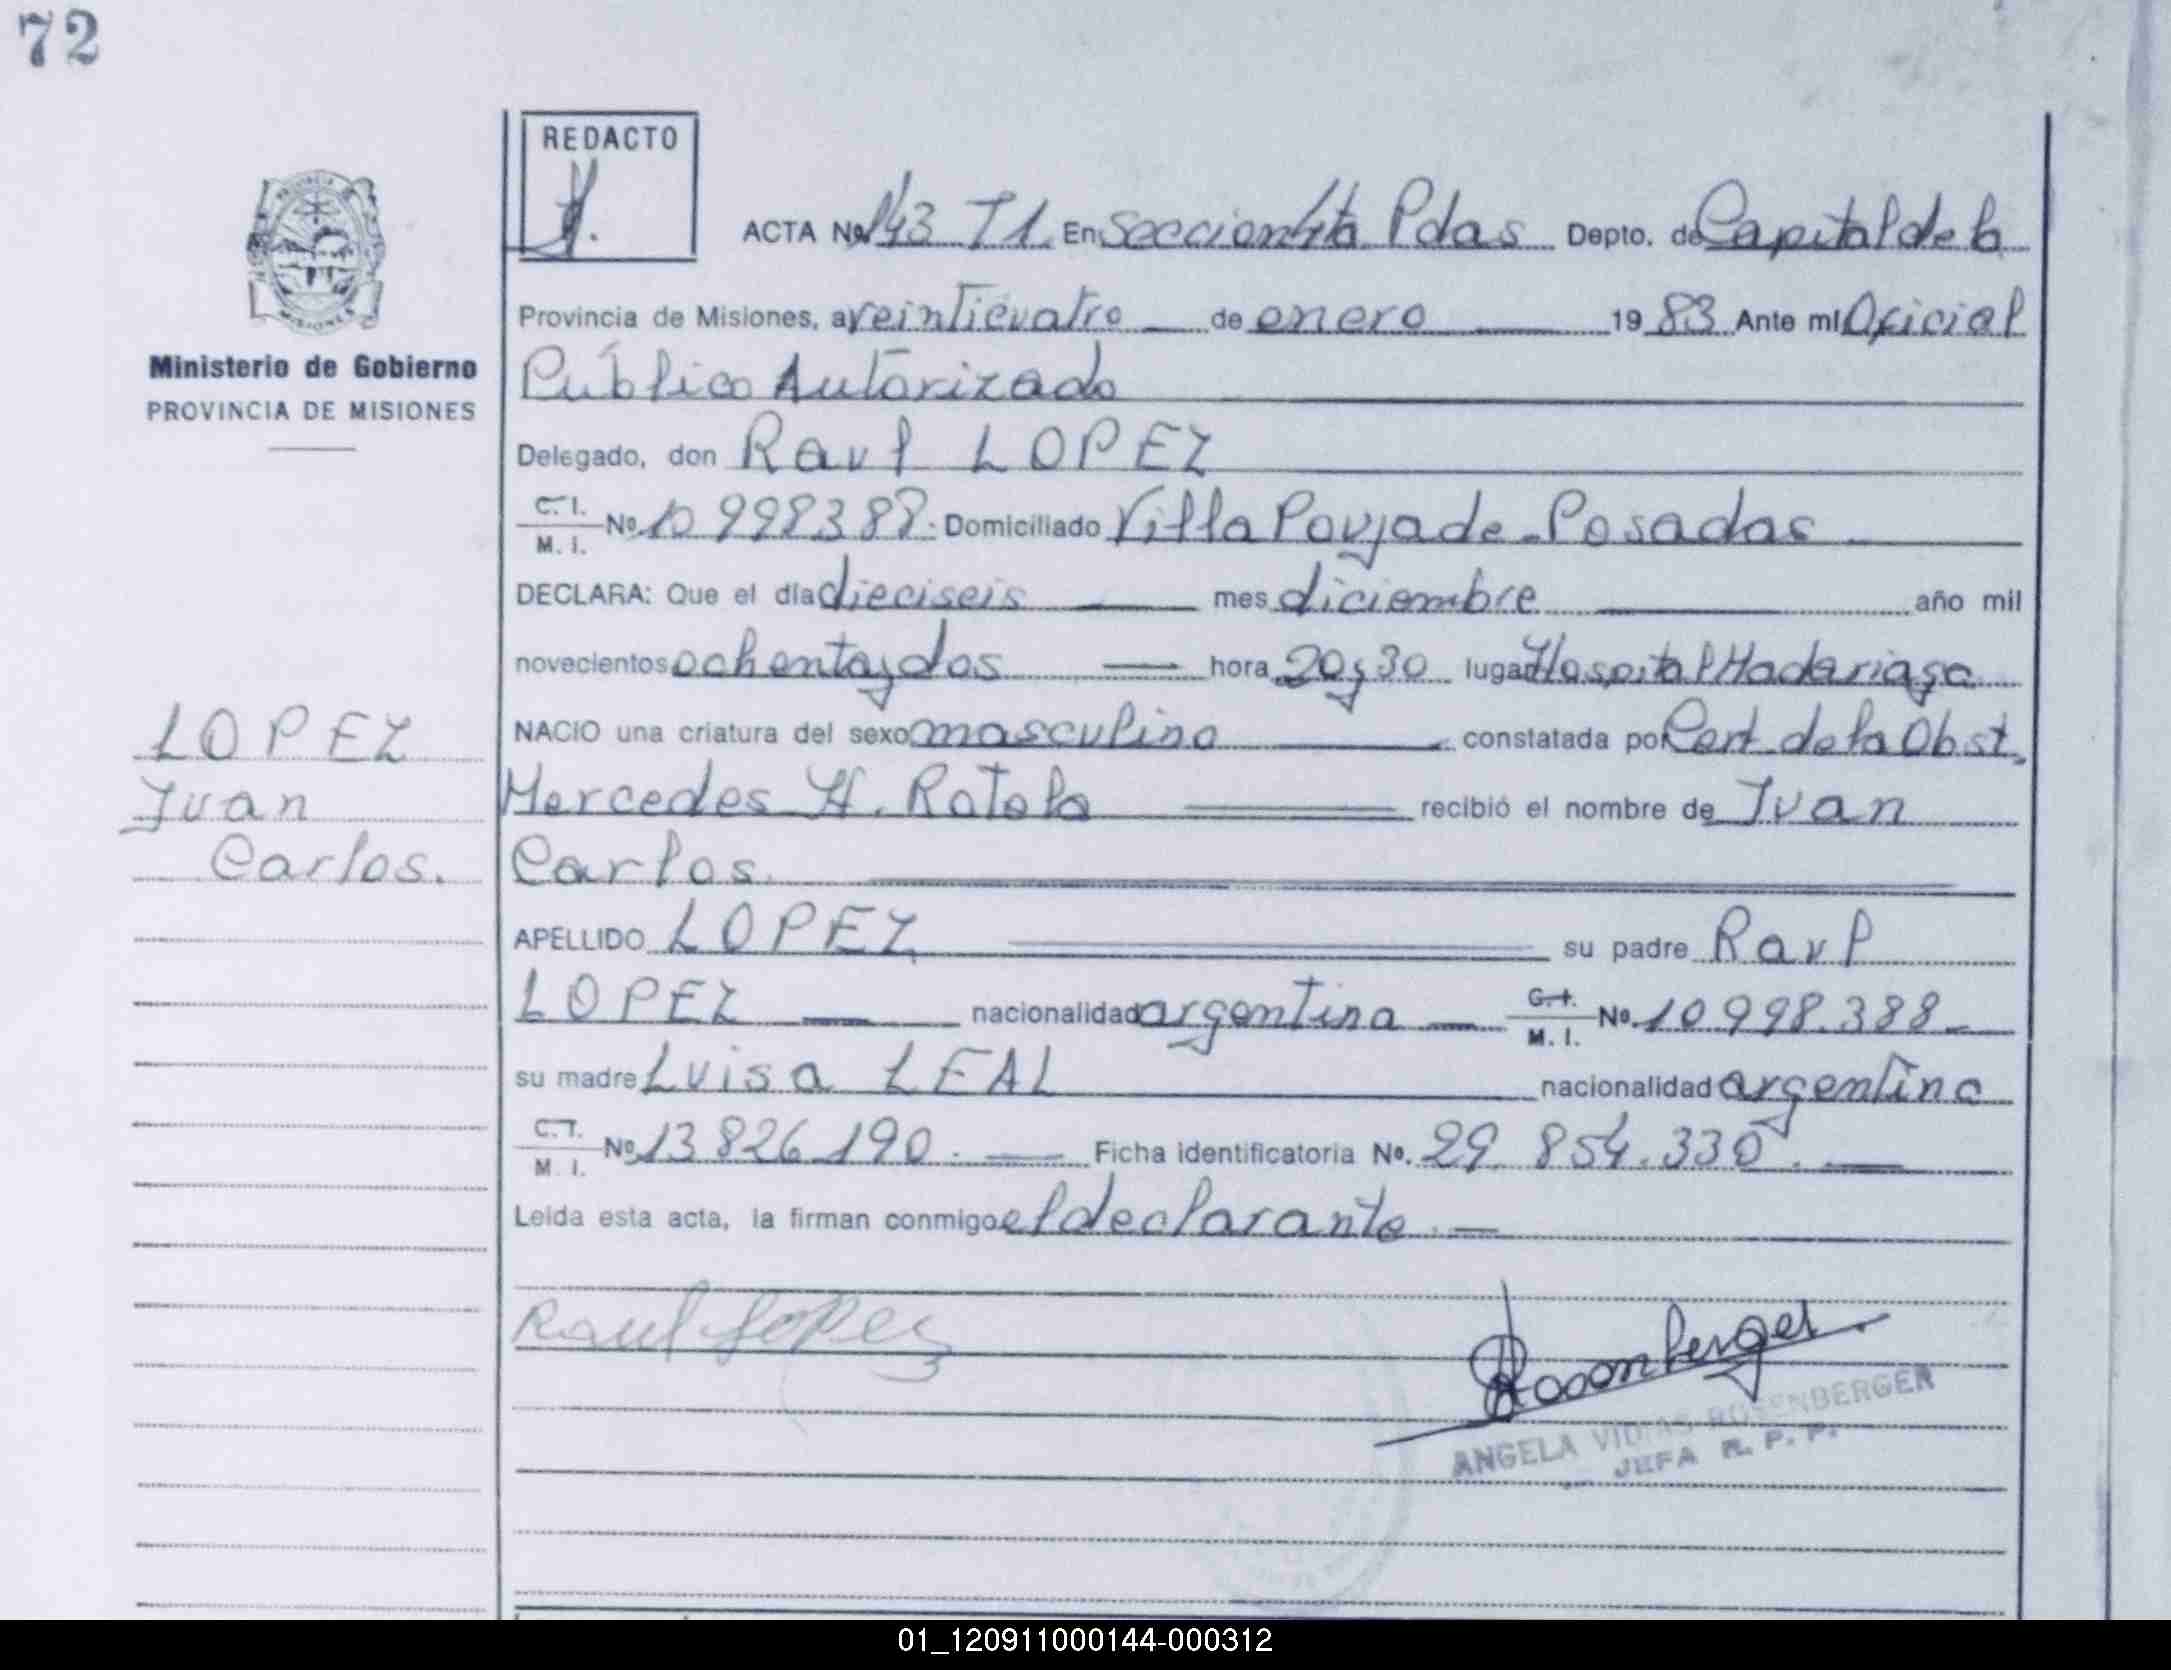 72
REDACTO
ACTA No. 143 T1. En Seccion 4ta Pdas Depto. de Capital de la
Provincia de Misiones, a veinticuatro de enero 1983 Ante mi Oficial
Ministerio de Gobierno
PROVINCIA DE MISIONES
Público Autorizado
Delegado, don Raul LOPEZ
C. I.
M. I. No. 10 998388. Domiciliado Villa Poujade - Posadas
DECLARA: Que el día dieciseis mes diciembre año mil
novecientos ochenta y dos hora 20 y 30 lugar Hospital Madariaga
NACIO una criatura del sexo masculino constatada por Cert. de la Obst.
Mercedes H. Rotela recibió el nombre de Juan
Carlos.
LOPEZ
Juan
Carlos.
APELLIDO LOPEZ su padre Raul
LOPEZ nacionalidad argentina C. I.
M. I. No. 10 998.388
su madre Luisa LEAL nacionalidad argentina
C. I.
M. I. No. 13 826 190. Ficha identificatoria No. 29. 854.330.
Leida esta acta, la firman conmigo el declarante.
Raul Lopez
Rosenberger
ANGELA ROSENBERGER
JEFA R. P. P.
01_120911000144-000312